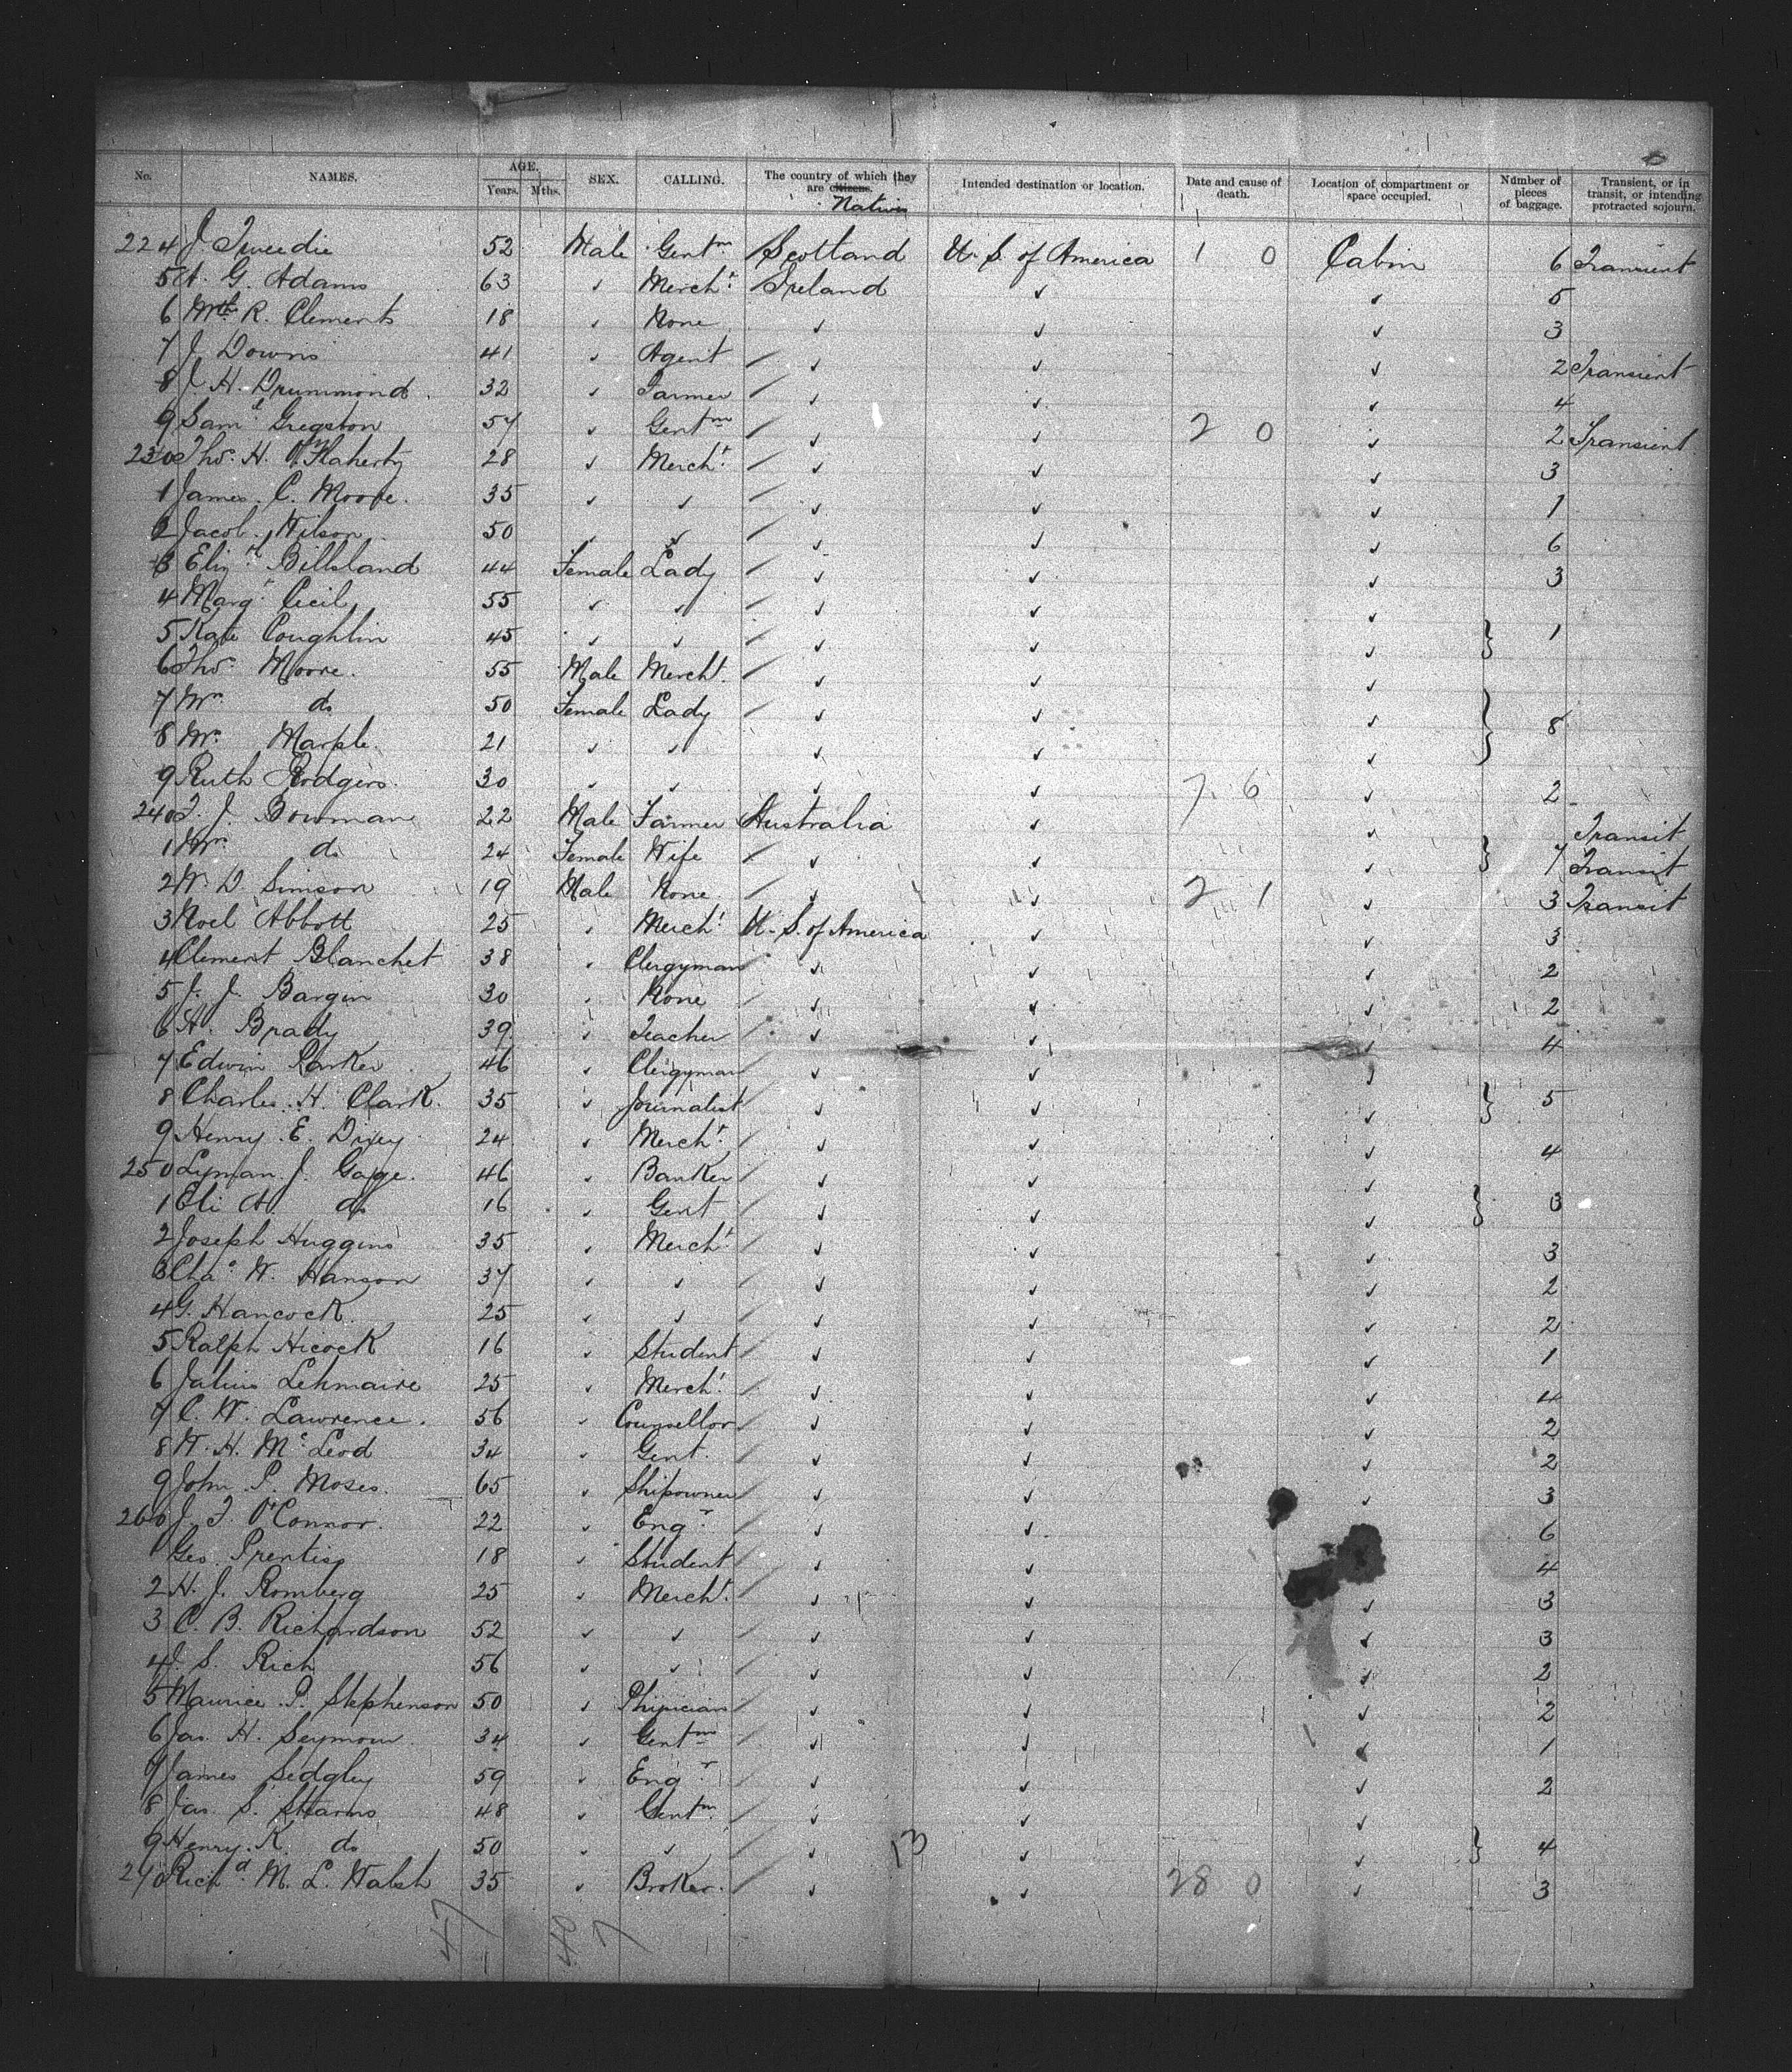 No. NAMES. AGE. Years. Mths. SEX. CALLING. The country of which they are citizens. Natives Intended destination or location. Date and cause of death. Location of compartment or space occupied. Number of pieces of baggage. Transient, or in transit, or intending protracted sojourn.
224 J Tweedie 52 Male Gentm Scotland U. S. of America 1 0 Cabin 6 Transient
5 A. G. Adams 63 ✓ Mercht Ireland ✓ ✓ 5
6 R. Clements 18 ✓ None ✓ ✓ ✓ 3
7 J. Downs 41 ✓ Agent ✓ ✓ ✓ 2 Transient
8 J. H. Drummond 32 ✓ Farmer ✓ ✓ ✓ 4
9 Saml Gregston 57 ✓ Gentm ✓ ✓ 2 0 ✓ 2 Transient
230 Thos. H. O'Flaherty 28 ✓ Mercht ✓ ✓ ✓ 3
1 James C. Moore 35 ✓ ✓ ✓ ✓ ✓ 1
2 Jacob Wilson 50 ✓ ✓ ✓ ✓ ✓ 6
3 Elizth Billsland 44 Female Lady ✓ ✓ ✓ 3
4 Margt Cecil 55 ✓ ✓ ✓ ✓ ✓
5 Kate Coughlin 45 ✓ ✓ ✓ ✓ ✓ } 1
6 Thos. Moore 55 Male Mercht. ✓ ✓ ✓
7 Mrs do 50 Female Lady ✓ ✓ ✓ } 8
8 Mrs Marple 21 ✓ ✓ ✓ ✓ ✓
9 Ruth Rodgers 30 ✓ ✓ ✓ ✓ 7 6 ✓ 2
240 J. Bowman 22 Male Farmer Australia ✓ ✓ Transit
1 Mrs do 24 Female Wife ✓ ✓ ✓ } 7 Transit
2 W. D. Simson 19 Male None ✓ ✓ 2 1 ✓ 3 Transit
3 Noel Abbott 25 ✓ Mercht U. S. of America ✓ ✓ 3
4 Clement Blanchet 38 ✓ Clergyman ✓ ✓ ✓ 2
5 J. J. Bargin 30 ✓ None ✓ ✓ ✓ 2
6 H. Brady 39 ✓ Teacher ✓ ✓ ✓ 4
7 Edwin Parker 46 ✓ Clergyman ✓ ✓ ✓
8 Charles H. Clark 35 ✓ Journalist ✓ ✓ ✓ } 5
9 Henry E. Dixey 24 ✓ Mercht ✓ ✓ ✓ 4
250 Lyman J. Gage 46 ✓ Banker ✓ ✓ ✓
1 Eli A. do 16 ✓ Gent ✓ ✓ ✓ } 3
2 Joseph Huggins 35 ✓ Mercht ✓ ✓ ✓ 3
3 Chas W. Hanson 37 ✓ ✓ ✓ ✓ ✓ 2
4 G. Hancock 25 ✓ ✓ ✓ ✓ ✓ 2
5 Ralph Hicock 16 ✓ Student ✓ ✓ ✓ 1
6 Julius Lehmaire 25 ✓ Mercht ✓ ✓ ✓ 4
7 C. W. Lawrence 56 ✓ Counsellor ✓ ✓ ✓ 2
8 W. H. McLeod 34 ✓ Gent. ✓ ✓ ✓ 2
9 John P. Moses 65 ✓ Shipowner ✓ ✓ ✓ 3
260 J. F. O'Connor 22 ✓ Engr ✓ ✓ 6
1 Geo. Prentiss 18 ✓ Student ✓ ✓ 4
2 H. J. Romberg 25 ✓ Mercht. ✓ ✓ ✓ 3
3 C. B. Richardson 52 ✓ ✓ ✓ ✓ ✓ 3
4 J. S. Rich 56 ✓ ✓ ✓ ✓ ✓ 2
5 Maurice P. Stephenson 50 ✓ Physician ✓ ✓ ✓ 2
6 Jas. H. Seymour 34 ✓ Gentm ✓ ✓ ✓ 1
7 James Sedgley 59 ✓ Engr ✓ ✓ ✓ 2
8 Jas. S. Stearns 48 ✓ Gentm ✓ ✓ ✓
9 Henry K. do 50 ✓ ✓ ✓ 13 ✓ ✓ } 4
270 Richd M. L. Walsh 35 ✓ Broker. ✓ ✓ 28 0 ✓ 3
47 40 7